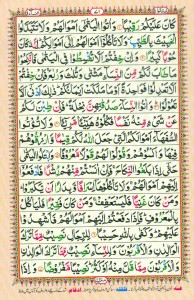 كَانَ عَلَيْكُمْ رَقِيْبًا وَاٰتُوا الْيَتٰمٰٓى اَمْوَالَهُمْ وَلَا تَتَبَدَّلُوا
الْخَبِيْثَ بِالطَّيِّبِ وَلَا تَاْكُلُوْٓا اَمْوَالَهُمْ اِلٰٓى اَمْوَالِكُمْ اِنَّهٗ كَانَ
حُوْبًا كَبِيْرًا وَاِنْ خِفْتُمْ اَلَّا تُقْسِطُوْا فِي الْيَتٰمٰى فَانْكِحُوْا مَا
طَابَ لَكُمْ مِّنَ النِّسَآءِ مَثْنٰى وَثُلٰثَ وَرُبٰعَ فَاِنْ خِفْتُمْ
اَلَّا تَعْدِلُوْا فَوَاحِدَةً اَوْ مَا مَلَكَتْ اَيْمَانُكُمْ ذٰلِكَ اَدْنٰٓى اَلَّا
تَعُوْلُوْا وَاٰتُوا النِّسَآءَ صَدُقٰتِهِنَّ نِحْلَةً فَاِنْ طِبْنَ لَكُمْ عَنْ
شَيْءٍ مِّنْهُ نَفْسًا فَكُلُوْهُ هَنِيْٓئًا مَّرِيْٓئًا وَلَا تُؤْتُوا
السُّفَهَآءَ اَمْوَالَكُمُ الَّتِيْ جَعَلَ اللّٰهُ لَكُمْ قِيٰمًا وَّارْزُقُوْهُمْ
فِيْهَا وَاكْسُوْهُمْ وَقُوْلُوْا لَهُمْ قَوْلًا مَّعْرُوْفًا وَابْتَلُوا الْيَتٰمٰى
حَتّٰٓى اِذَا بَلَغُوا النِّكَاحَ فَاِنْ اٰنَسْتُمْ مِّنْهُمْ رُشْدًا فَادْفَعُوْٓا
اِلَيْهِمْ اَمْوَالَهُمْ وَلَا تَاْكُلُوْهَآ اِسْرَافًا وَّبِدَارًا اَنْ يَّكْبَرُوْا
وَمَنْ كَانَ غَنِيًّا فَلْيَسْتَعْفِفْ وَمَنْ كَانَ فَقِيْرًا فَلْيَاْكُلْ
بِالْمَعْرُوْفِ فَاِذَا دَفَعْتُمْ اِلَيْهِمْ اَمْوَالَهُمْ فَاَشْهِدُوْا
عَلَيْهِمْ وَكَفٰى بِاللّٰهِ حَسِيْبًا لِلرِّجَالِ نَصِيْبٌ مِّمَّا تَرَكَ
الْوَالِدٰنِ وَالْاَقْرَبُوْنَ وَلِلنِّسَآءِ نَصِيْبٌ مِّمَّا تَرَكَ الْوَالِدٰنِ
وَالْاَقْرَبُوْنَ مِمَّا قَلَّ مِنْهُ اَوْ كَثُرَ نَصِيْبًا مَّفْرُوْضًا وَاِذَا